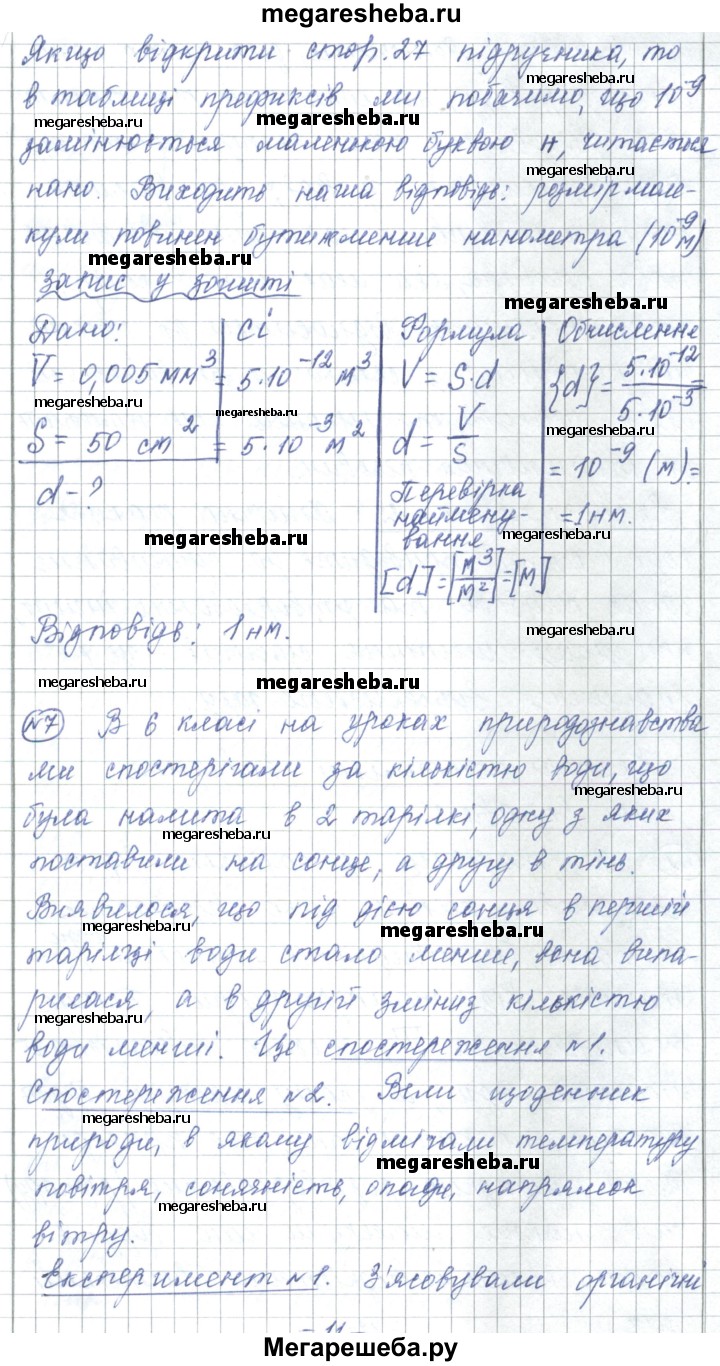 megaresheba.ru
Якщо відкрити стор. 27 підручника, то
megaresheba.ru
в таблиці префиксів ми побачимо, що 10⁻⁹
megaresheba.ru megaresheba.ru
замінюється маленькою буквою н, читається
нано. Виходить наша відповідь: розмір моле-
megaresheba.ru
кули повинен бути менше нанометра (10⁻⁹м)
megaresheba.ru
Запис у зошиті
megaresheba.ru
Дано: | Сі | Формула | Обчислення
V = 0,005 мм³ = | 5·10⁻¹² м³ | V = S·d | {d} = 5·10⁻¹² / 5·10⁻³ =
megaresheba.ru megaresheba.ru
S = 50 cm² | = 5·10⁻³ м² | d = V/S | = 10⁻⁹ (м) =
megaresheba.ru
d - ? | Перевірка
найmену- | = 1 нм.
вання
megaresheba.ru
[d] = [м³/м²] = [м]
Відповідь: 1 нм.
megaresheba.ru
megaresheba.ru megaresheba.ru
№7 В 6 класі на уроках природознавства
ми спостерігали за кількістю води, що
megaresheba.ru
була налита в 2 тарілкі, одну з яких
megaresheba.ru
поставили на сонце, а другу в тінь.
Виявилося, що під дією сонця в першій
megaresheba.ru
тарілці води стало менше, вона випа-
megaresheba.ru
рилася, а в другій зміни з кількістю
megaresheba.ru
води менші. Це спостереження №1.
Спостереження №2. Вели щоденник
megaresheba.ru megaresheba.ru
природи, в якому відмічали температуру
megaresheba.ru
повітря, сонячність, опади, напрямок
megaresheba.ru
вітру.
Експеримент №1. З'ясовували органічні
- 11 -
Мегарешеба.ру